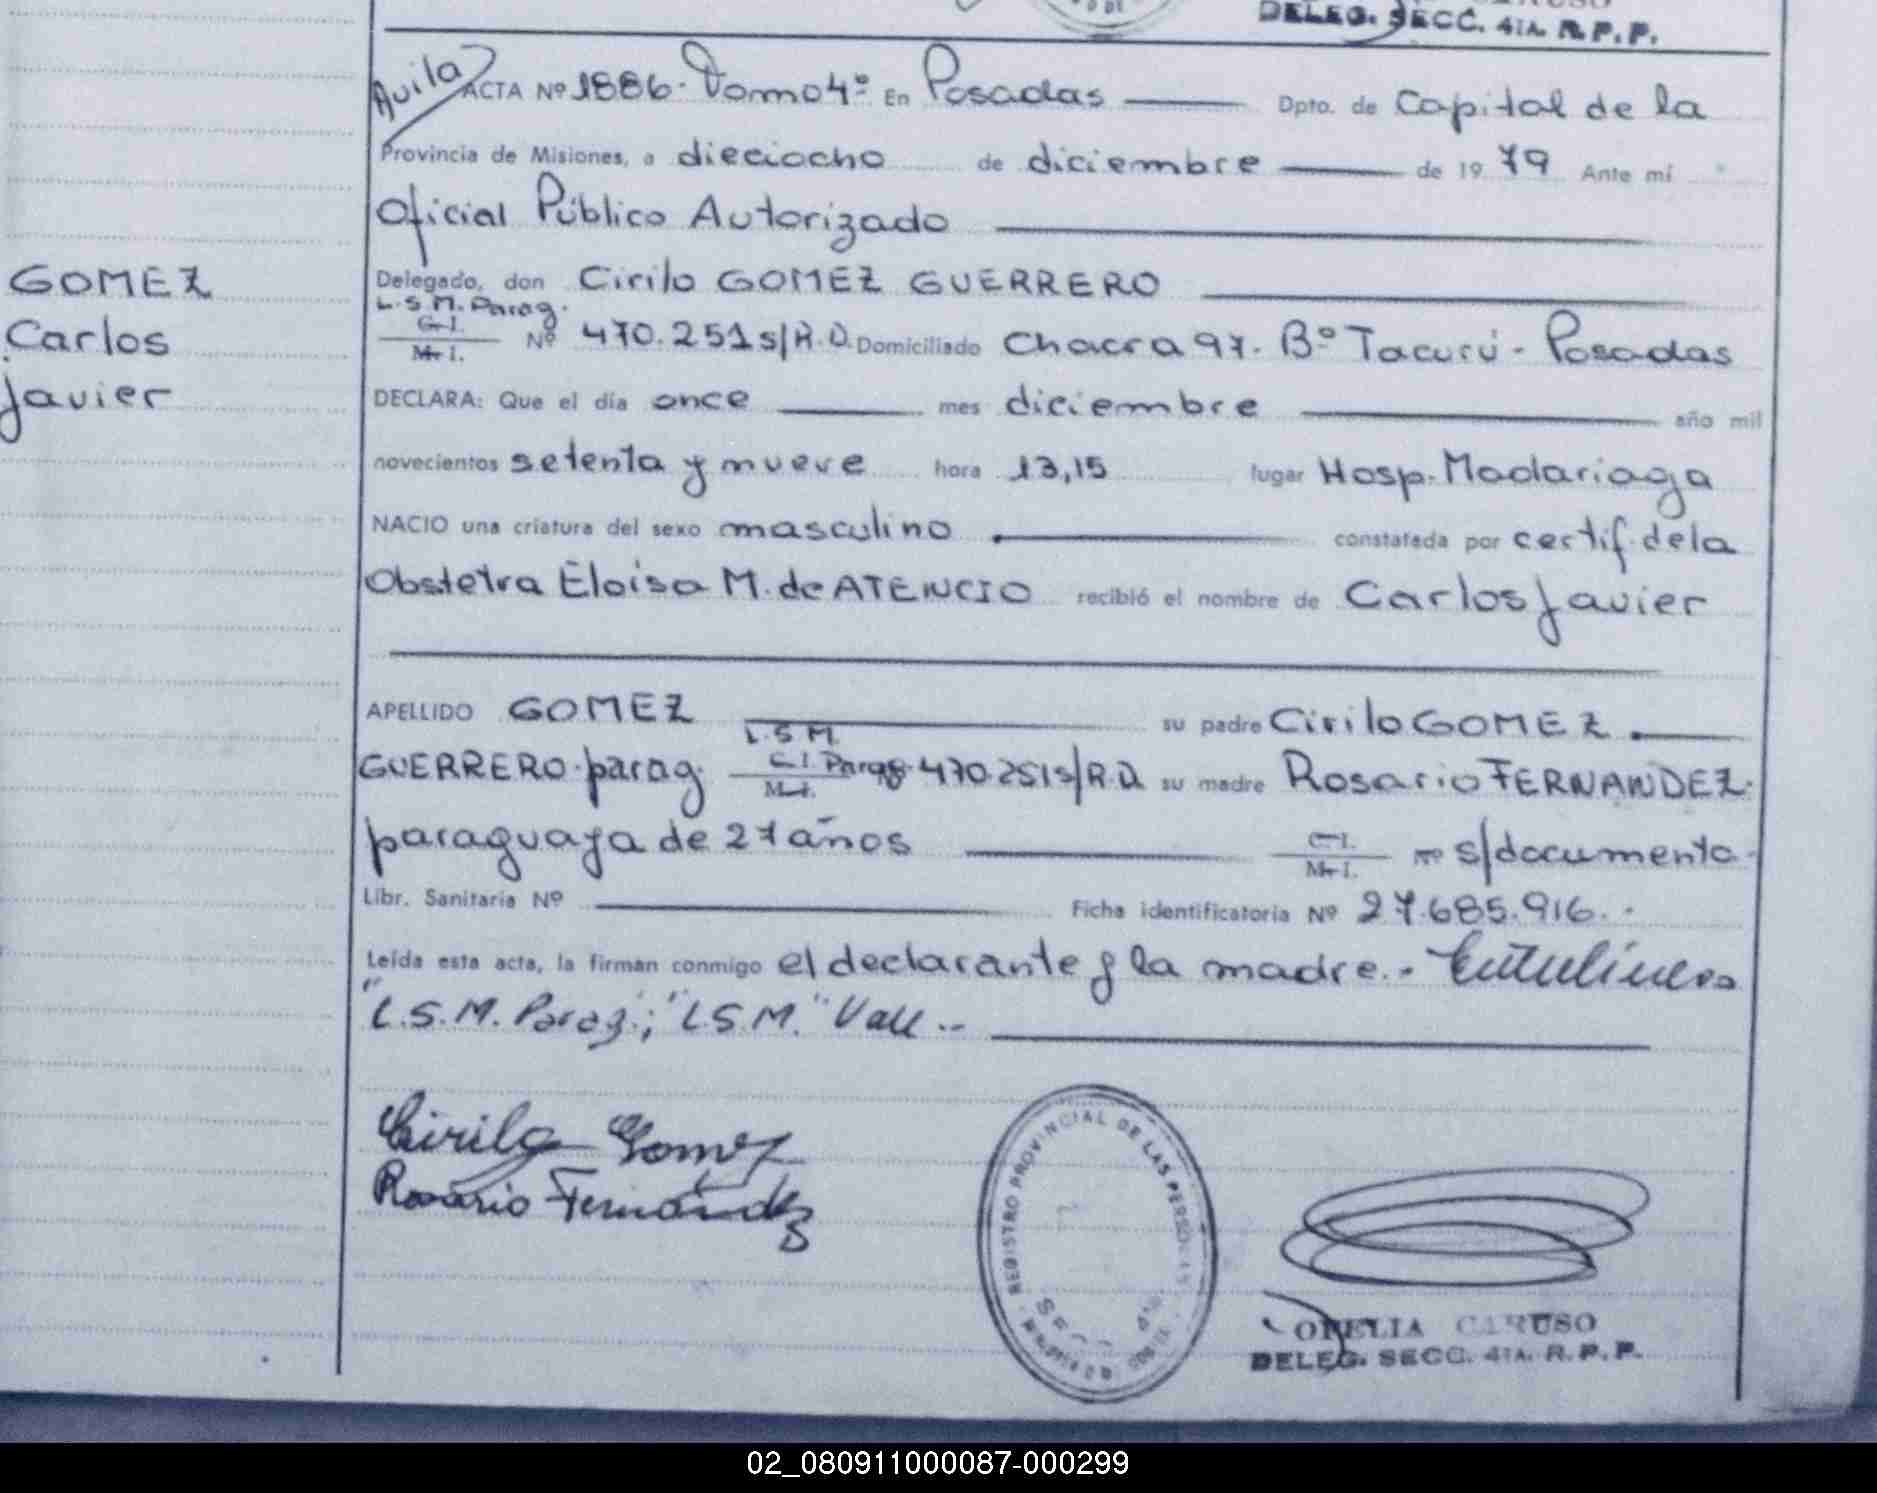 DELEG. SECC. 4TA. R.P.P.
Avila
ACTA Nº 1886. Tomo 4º En Posadas Dpto. de Capital de la
Provincia de Misiones, a dieciocho de diciembre de 1979 Ante mí
Oficial Público Autorizado
Delegado, don Cirilo GOMEZ GUERRERO
L.S.M. Parag.
C.I.
M.I.
Nº 470.251 s/R.D. Domiciliado Chacra 97. Bº Tacurú - Posadas
DECLARA: Que el día once mes diciembre año mil
novecientos setenta y nueve hora 13,15 lugar Hosp. Madariaga
NACIO una criatura del sexo masculino constatada por certif. de la
Obstetra Eloisa M. de ATENCIO recibió el nombre de Carlos Javier
APELLIDO GOMEZ su padre Cirilo GOMEZ
L.S.M.
GUERRERO. parag. C.I. Parag. 470.251 s/R.D. su madre Rosario FERNANDEZ.
M.I.
paraguaya de 27 años C.I. Nº s/documento.
M.I.
Libr. Sanitaria Nº Ficha identificatoria Nº 27.685.916.-
Leída esta acta, la firman conmigo el declarante y la madre.- Entrelíneas
"L.S.M. Parag."; "L.S.M." Vale.-
Cirilo Gomez
Rosario Fernández
REGISTRO PROVINCIAL DE LAS PERSONAS
SECC. 4TA.
OFELIA CARUSO
DELEG. SECC. 4TA. R.P.P.
GOMEZ
Carlos
Javier
02_080911000087-000299